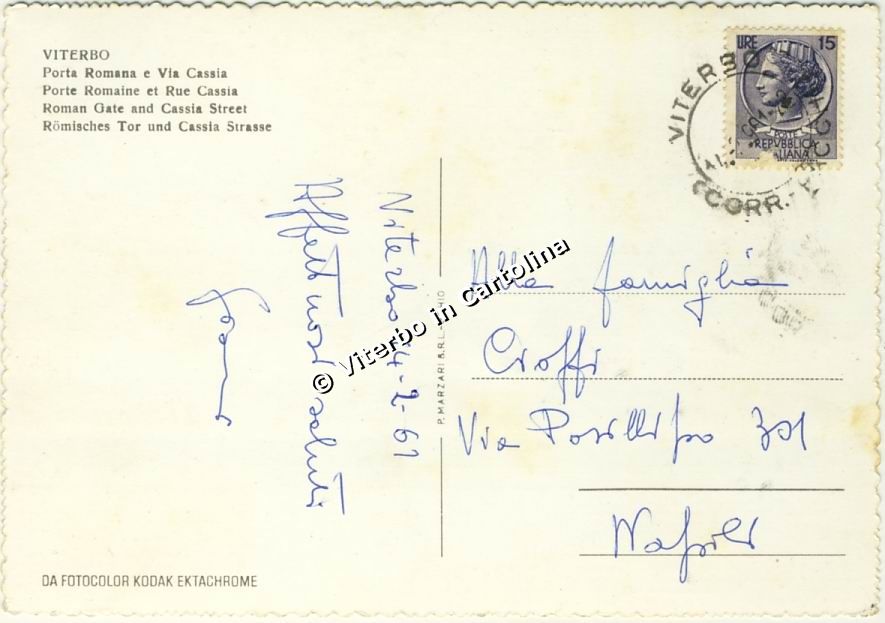 VITERBO
Porta Romana e Via Cassia
Porte Romaine et Rue Cassia
Roman Gate and Cassia Street
Römisches Tor und Cassia Strasse
LIRE 15
POSTE
REPVBBLICA
ITALIANA
VITERBO
CORR.-PACCHI
Viterbo 14-2-61
Affettuosi saluti
P. MARZARI S.R.L. - SCHIO
© Viterbo in Cartolina
Alla famiglia
Cioffi
Via Posillipo 301
Napoli
DA FOTOCOLOR KODAK EKTACHROME